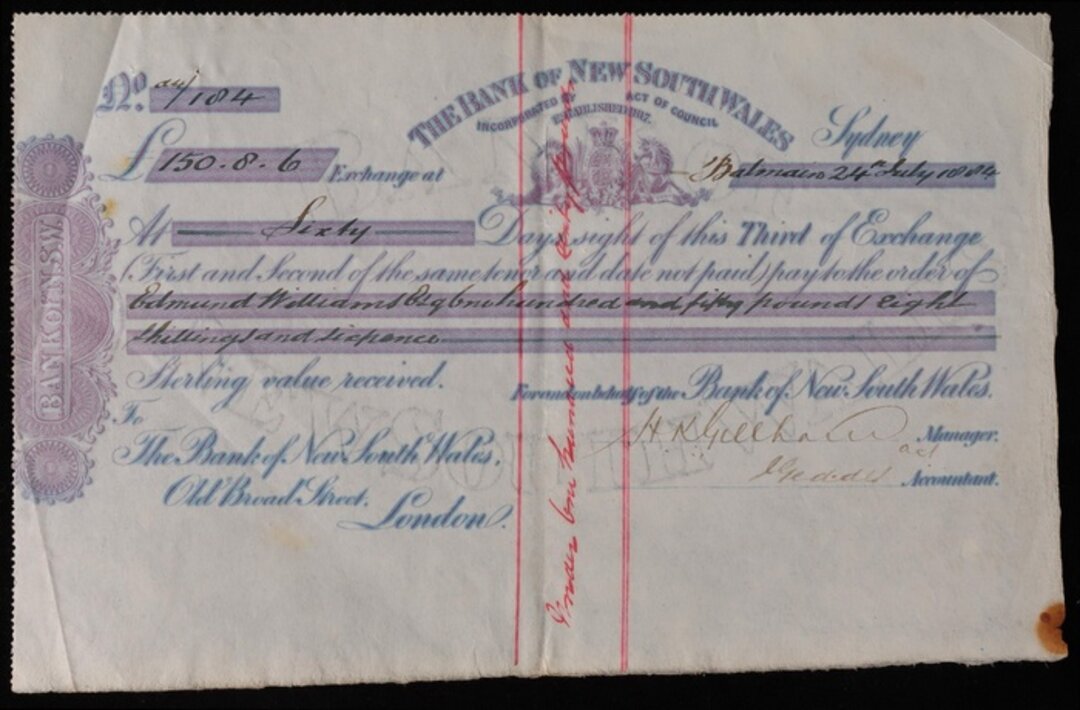 No. 84/184
THE BANK OF NEW SOUTH WALES
INCORPORATED BY ACT OF COUNCIL
ESTABLISHED 1817.
Sydney
£ 150.8.6 Exchange at Balmain 24th July 1884
At Sixty Days sight of this Third of Exchange
(First and Second of the same tenor and date not paid) pay to the order of
Edmund Williams Esq One hundred and fifty pounds eight
shillings and sixpence
Sterling value received.
For and on behalf of the Bank of New South Wales.
To
The Bank of New South Wales,
Old Broad Street,
London.
H R Gillham Manager.
act
J Geddes Accountant.
BANK OF N.S.W.
Under one hundred and sixty pounds